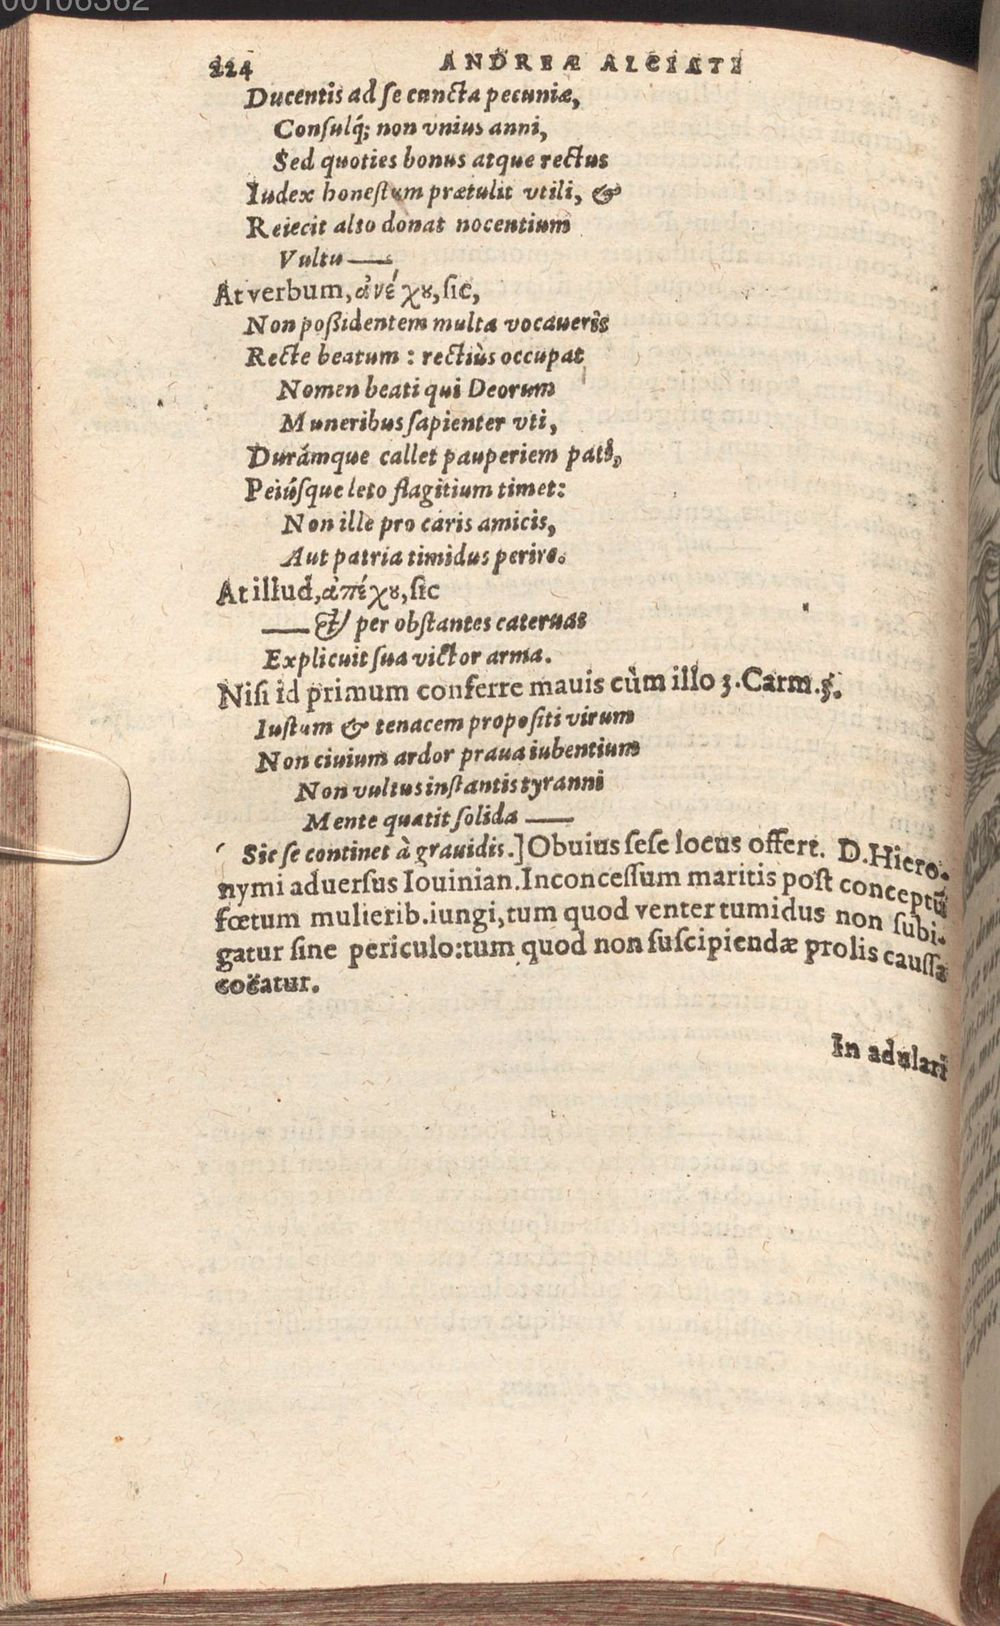 00106362
224 ANDREÆ ALCIATI
Ducentis ad se cuncta pecuniæ,
Consulq́; non vnius anni,
Sed quoties bonus atque rectus
Iudex honestum prætulit vtili, &
Reiecit alto donat nocentium
Vultu —
At verbum, ἀνέχου, sic,
Non poßidentem multa vocaueris
Recte beatum : rectiùs occupat
Nomen beati qui Deorum
Muneribus sapienter vti,
Durámque callet pauperiem pati,
Peiúsque leto flagitium timet:
Non ille pro caris amicis,
Aut patria timidus perire.
At illud, ἀπέχου, sic
— & per obstantes cateruas
Explicuit sua victor arma.
Nisi id primum conferre mauis cùm illo 3. Carm. 3.
Iustum & tenacem propositi virum
Non ciuium ardor praua iubentium
Non vultus instantis tyranni
Mente quatit solida —
Sic se continet à grauidis.] Obuius sese locus offert. D. Hiero-
nymi aduersus Iouinian. Inconcessum maritis post conceptũ
fœtum mulierib. iungi, tum quod venter tumidus non subi-
gatur sine periculo: tum quod non suscipiendæ prolis caussa
coëatur.
In adulari